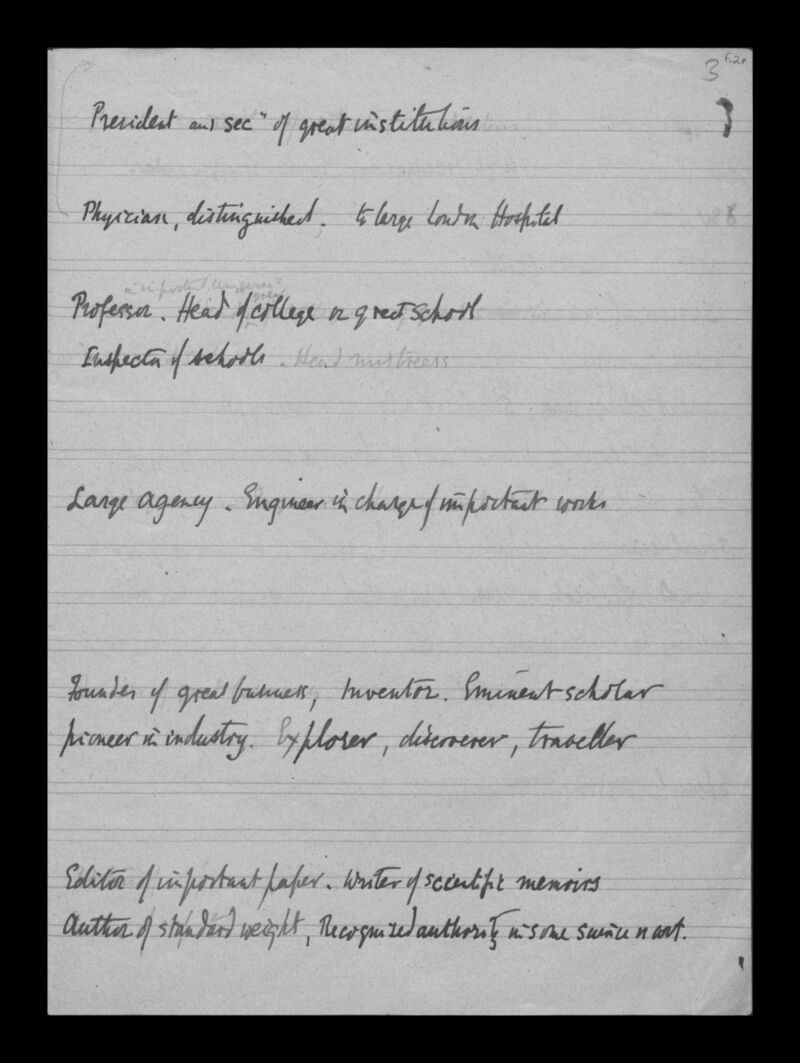 3 f.2r
President and secy of great institutions
Physician, distinguished. to large London Hospital
in important University
great
Professor. Head of college or great School
Inspector of schools. Head mistress
Large agency. Engineer in charge of important works
Founder of great business, Inventor. Eminent scholar
pioneer in industry. Explorer, discoverer, traveller
Editor of important paper. Writer of scientific memoirs
Author of standard weight, Recognized authority in some science or art.